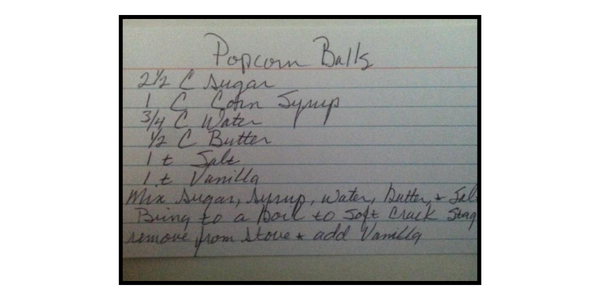 Popcorn Balls
2½ C Sugar
1 C Corn Syrup
¾ C Water
½ C Butter
1 t Salt
1 t Vanilla
Mix Sugar, Syrup, Water, Butter, + Sal
Bring to a boil to Soft Crack Stag
remove from Stove + add Vanilla